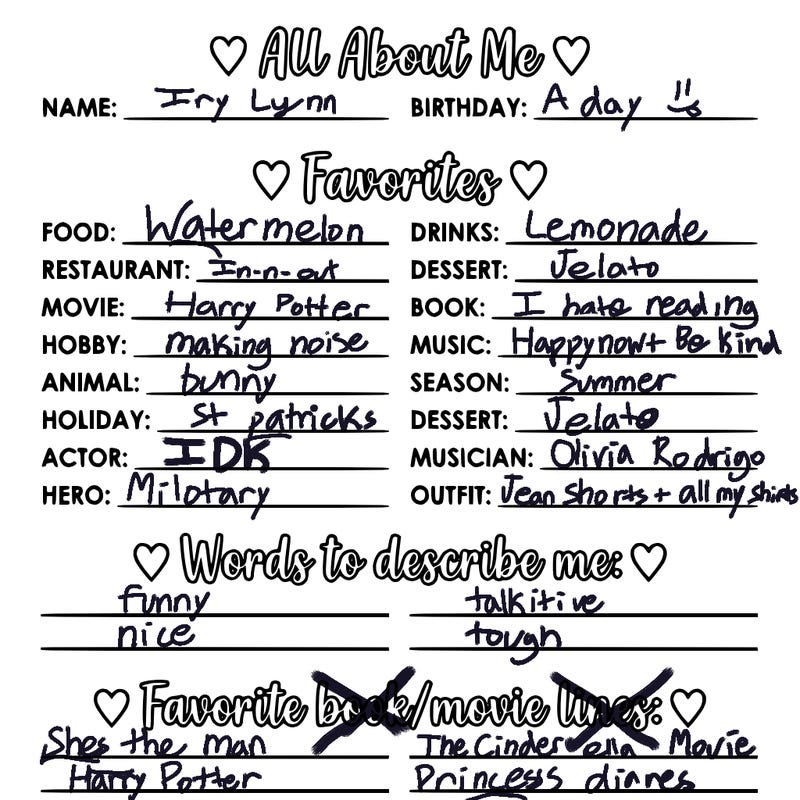 All About Me
NAME: Iry Lynn BIRTHDAY: A day
Favorites
FOOD: Watermelon DRINKS: Lemonade
RESTAURANT: In-n-out DESSERT: Jelato
MOVIE: Harry Potter BOOK: I hate reading
HOBBY: making noise MUSIC: Happy now + Be kind
ANIMAL: bunny SEASON: Summer
HOLIDAY: St patricks DESSERT: Jelato
ACTOR: IDK MUSICIAN: Olivia Rodrigo
HERO: Milotary OUTFIT: Jean Shorts + all my shirts
Words to describe me:
funny talkitive
nice tough
Favorite book/movie lines:
Shes the man The Cinderella Movie
Harry Potter Princess dianes